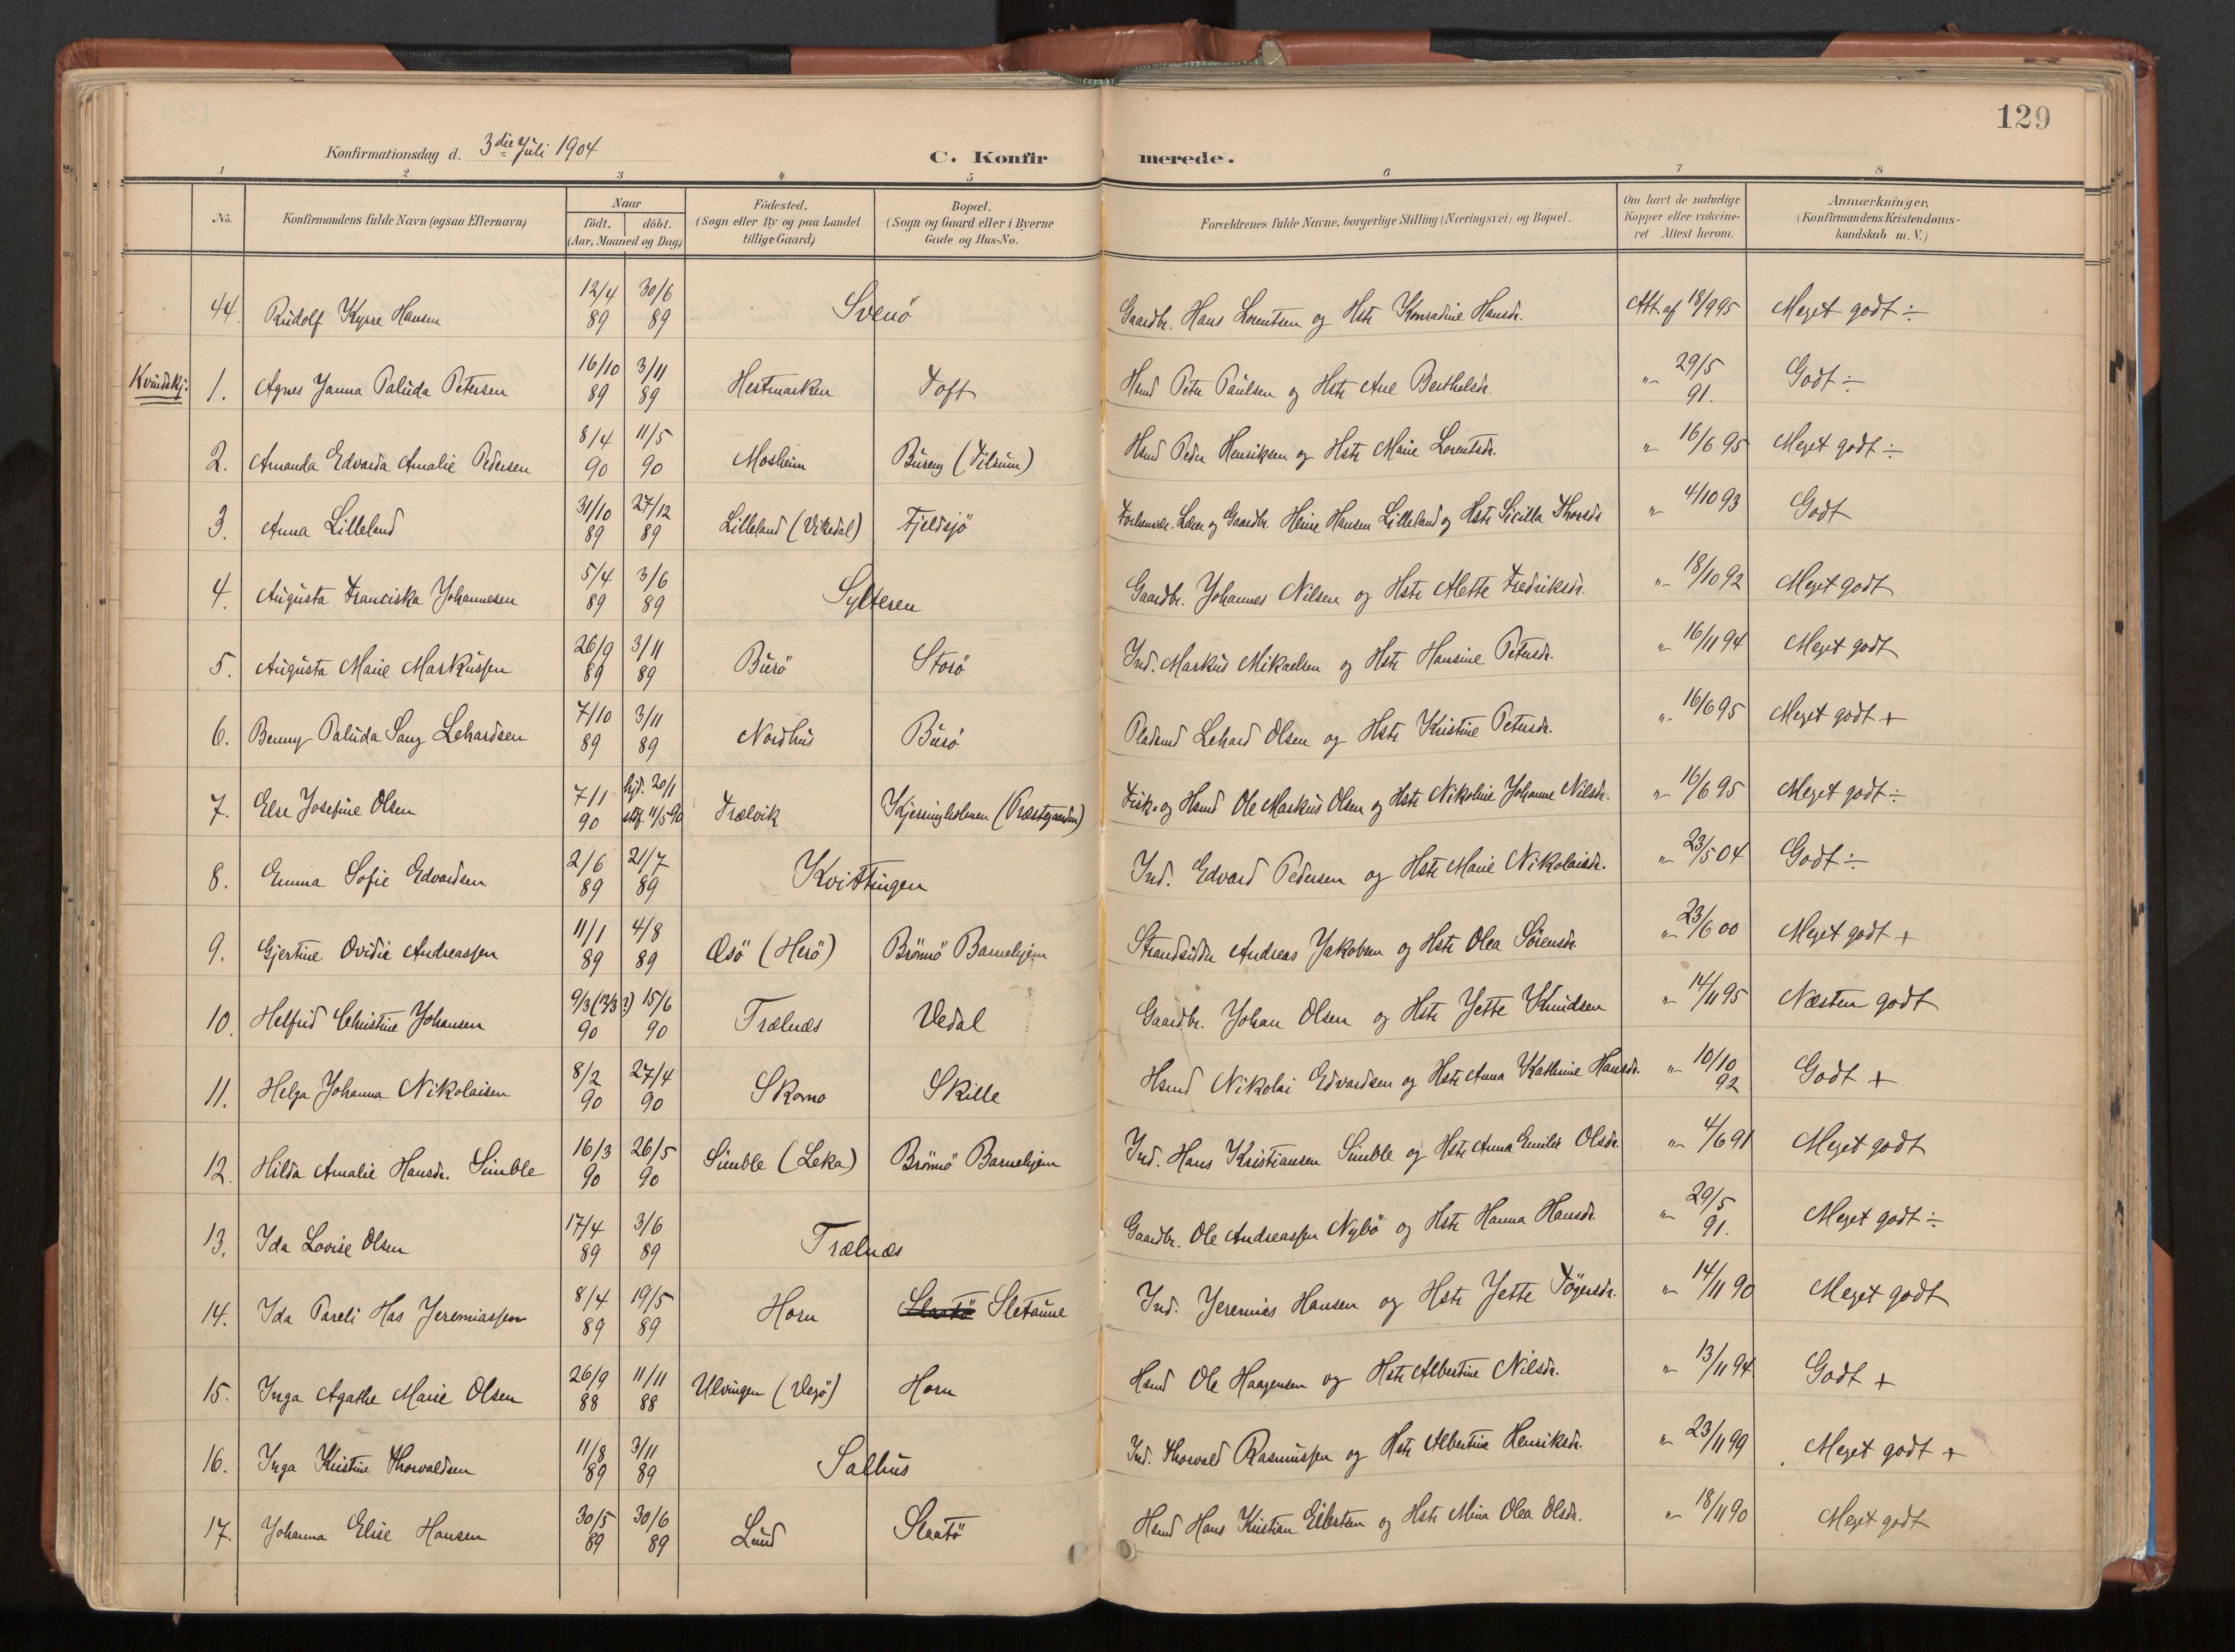 129
Konfirmationsdag d. 3die Juli 1904
C. Konfirmerede.
1 2 3 4 5 6 7 8
No. Konfirmandens fulde Navn (ogsaa Efternavn) Naar født. døbt. (Aar, Maaned og Dag) Födested. (Sogn eller By og paa Landet tillige Gaard) Bopæl. (Sogn og Gaard eller i Byerne Gade og Hus-No. Forældrenes fulde Navne, borgerlige Stilling (Næringsvei) og Bopæl. Om havt de naturlige Kopper eller vakcineret Attest herom. Anmærkninger. (Konfirmandens Kristendomskundskab m. V.)
44. Rudolf Kyrre Hansen 12/4 89 30/6 89 Svenö Gaardbr. Hans Lorentsen og Hstr Konradine Hansdr. Att. af 18/9 95 Meget godt ÷
Kvindekj:
1. Agnes Janna Paluda Petersen 16/10 89 3/11 89 Hestmarken Toft Hsmd Peter Paulsen og Hstr Ane Berthelsdr. " 29/5 91. Godt ÷
2. Amanda Edvarda Amalie Pedersen 8/4 90 11/5 90 Mosheim Büreng (Tilrum) Hsmd Peder Henriksen og Hstr Marie Lorentsdr. " 16/6 95 Meget godt ÷
3. Anna Lilleland 31/10 89 27/12 89 Lilleland (Vikedal) Fjeldsjö Forhenvær. Lærer og Gaardbr. Heine Hansen Lilleland og Hstr Sicilla Thorsdr " 4/10 93 Godt
4. Augusta Franciska Johannesen 5/4 89 3/6 89 Sylteren Gaardbr. Johannes Nilsen og Hstr Mette Fredriksdr. " 18/10 92 Meget godt
5. Augusta Marie Markussen 26/9 89 3/11 89 Burö Storö Ind. Markus Mikaelsen og Hstr Hansine Petersdr. " 16/11 94 Meget godt
6. Benny Paluda Sang Lehardsen 7/10 89 3/11 89 Nordhus Burö Pladsmd Lehard Olsen og Hstr Kristine Petersdr. " 16/6 95 Meget godt +
7. Else Josefine Olsen 7/1 90 hjd. 20/1 stf. 11/5 90 Trælvik Kjerringholmen (Præstegaarden) Fisk. og Hsmd Ole Markus Olsen og Hstr Nikoline Johanne Nilsdr. " 16/6 95 Meget godt ÷
8. Emma Sofie Edvardsen 2/6 89 21/7 89 Kvittingen Ind. Edvard Pedersen og Hstr Marie Nikolaisdr. " 23/5 04 Godt ÷
9. Gjertine Ovidie Andreassen 11/1 89 4/8 89 Øsö (Herö) Brönnö Barnehjem Strandsidder Andreas Jakobsen og Hstr Olea Sörensdr. " 23/6 00 Meget godt +
10. Helfrid Christine Johansen 9/3 (12/3?) 90 15/6 90 Trælnæs Vedal Gaardbr. Johan Olsen og Hstr Jette Knudsen " 14/11 95 Næsten godt
11. Helga Johanna Nikolaisen 8/2 90 27/4 90 Skomo Skille Hsmd Nikolai Edvardsen og Hstr Anna Kathrine Hansdr. " 10/10 92 Godt +
12. Hilda Amalie Hansdr. Simble 16/3 90 26/5 90 Simble (Leka) Brönnö Barnehjem Ind. Hans Kristiansen Simble og Hstr Anna Emilie Olsdr. " 4/6 91 Meget godt
13. Ida Lovise Olsen 17/4 89 3/6 89 Trælnæs Gaardbr. Ole Andreassen Nybö og Hstr Hanna Hansdr. " 29/5 91. Meget godt ÷
14. Ida Pareli Has Jeremiassen 8/4 89 19/5 89 Horn Slaatö Sletaune Ind. Jeremias Hansen og Hstr Jette Tögersdr. " 14/11 90 Meget godt
15. Inga Agathe Marie Olsen 26/9 88 11/11 88 Ulvingen (Vegö) Horn Hsmd Ole Haagensen og Hstr Albertine Nilsdr. " 13/11 94. Godt +
16. Inga Kristine Thorvaldsen 11/8 89 3/11 89 Salhus Ind. Thorvald Rasmussen og Hstr Albertine Henriksdr. " 23/11 99 Meget godt +
17. Johanna Elise Hansen 30/5 89 30/6 89 Lund Slaatö Hsmd Hans Kristian Eilertsen og Hstr Mina Olea Olsdr. " 18/11 90 Meget godt